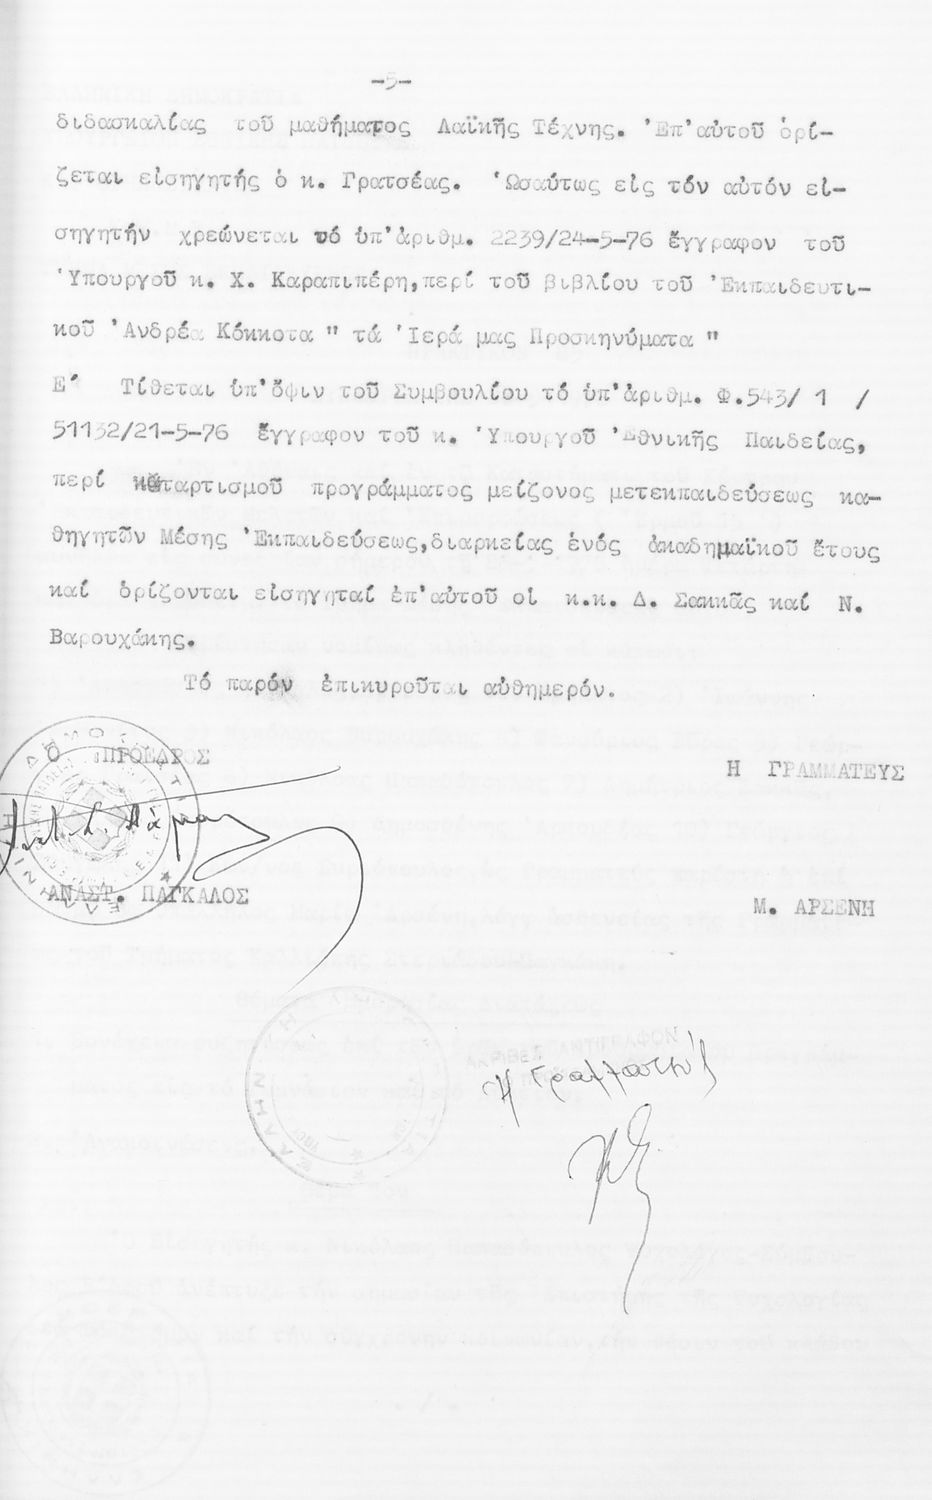 -5-
διδασκαλίας τοῦ μαθήματος Λαϊκῆς Τέχνης. Ἐπ'αὐτοῦ ὁρί-
ζεται εἰσηγητής ὁ κ. Γρατσέας. Ὡσαύτως εἰς τόν αὐτόν εἰ-
σηγητήν χρεώνεται τό ὑπ'ἀριθμ. 2239/24-5-76 ἔγγραφον τοῦ
Ὑπουργοῦ κ. Χ. Καραπιπέρη,περί τοῦ βιβλίου τοῦ Ἐκπαιδευτι-
κοῦ Ἀνδρέα Κόκκοτα " τά Ἱερά μας Προσκηνύματα "
Ε' Τίθεται ὑπ'ὄψιν τοῦ Συμβουλίου τό ὑπ'ἀριθμ. Φ.543/ 1 /
51132/21-5-76 ἔγγραφον τοῦ κ. Ὑπουργοῦ Ἐθνικῆς Παιδείας,
περί καταρτισμοῦ προγράμματος μείζονος μετεκπαιδεύσεως κα-
θηγητῶν Μέσης Ἐκπαιδεύσεως,διαρκείας ἑνός ἀκαδημαϊκοῦ ἔτους
καί ὁρίζονται εἰσηγηταί ἐπ'αὐτοῦ οἱ κ.κ. Δ. Σακκᾶς καί Ν.
Βαρουχάκης.
Τό παρόν ἐπικυροῦται αὐθημερόν.
Ο ΠΡΟΕΔΡΟΣ
Η ΓΡΑΜΜΑΤΕΥΣ
ΑΝΑΣΤ. ΠΑΓΚΑΛΟΣ
Μ. ΑΡΣΕΝΗ
ΑΚΡΙΒΕΣ ΑΝΤΙΓΡΑΦΟΝ
Η Γραμματεύς